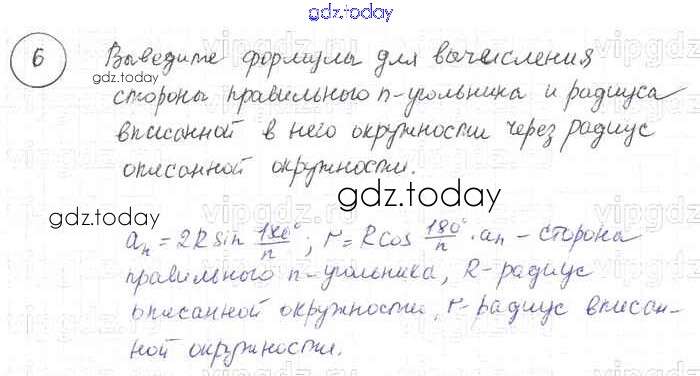 gdz.today
6 Выведите формулы для вычисления
gdz.today
стороны правильного n-угольника и радиуса
вписанной в него окружности через радиус
описанной окружности.
gdz.today
gdz.today
aₙ = 2R sin 180°/n; r = R cos 180°/n · aₙ - сторона
правильного n-угольника, R-радиус
описанной окружности, r-радиус вписан-
ной окружности.